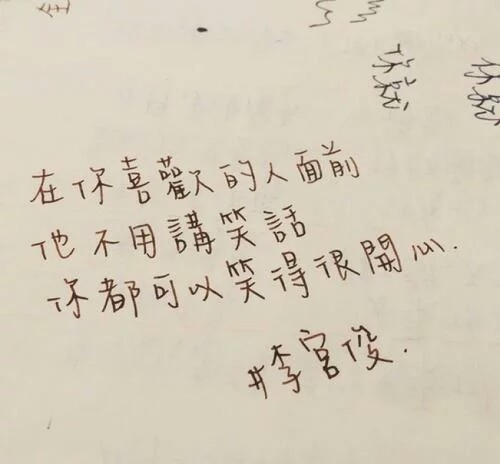 在你喜歡的人面前
他不用講笑話
你都可以笑得很開心.
#李宮俊.
你就
你就